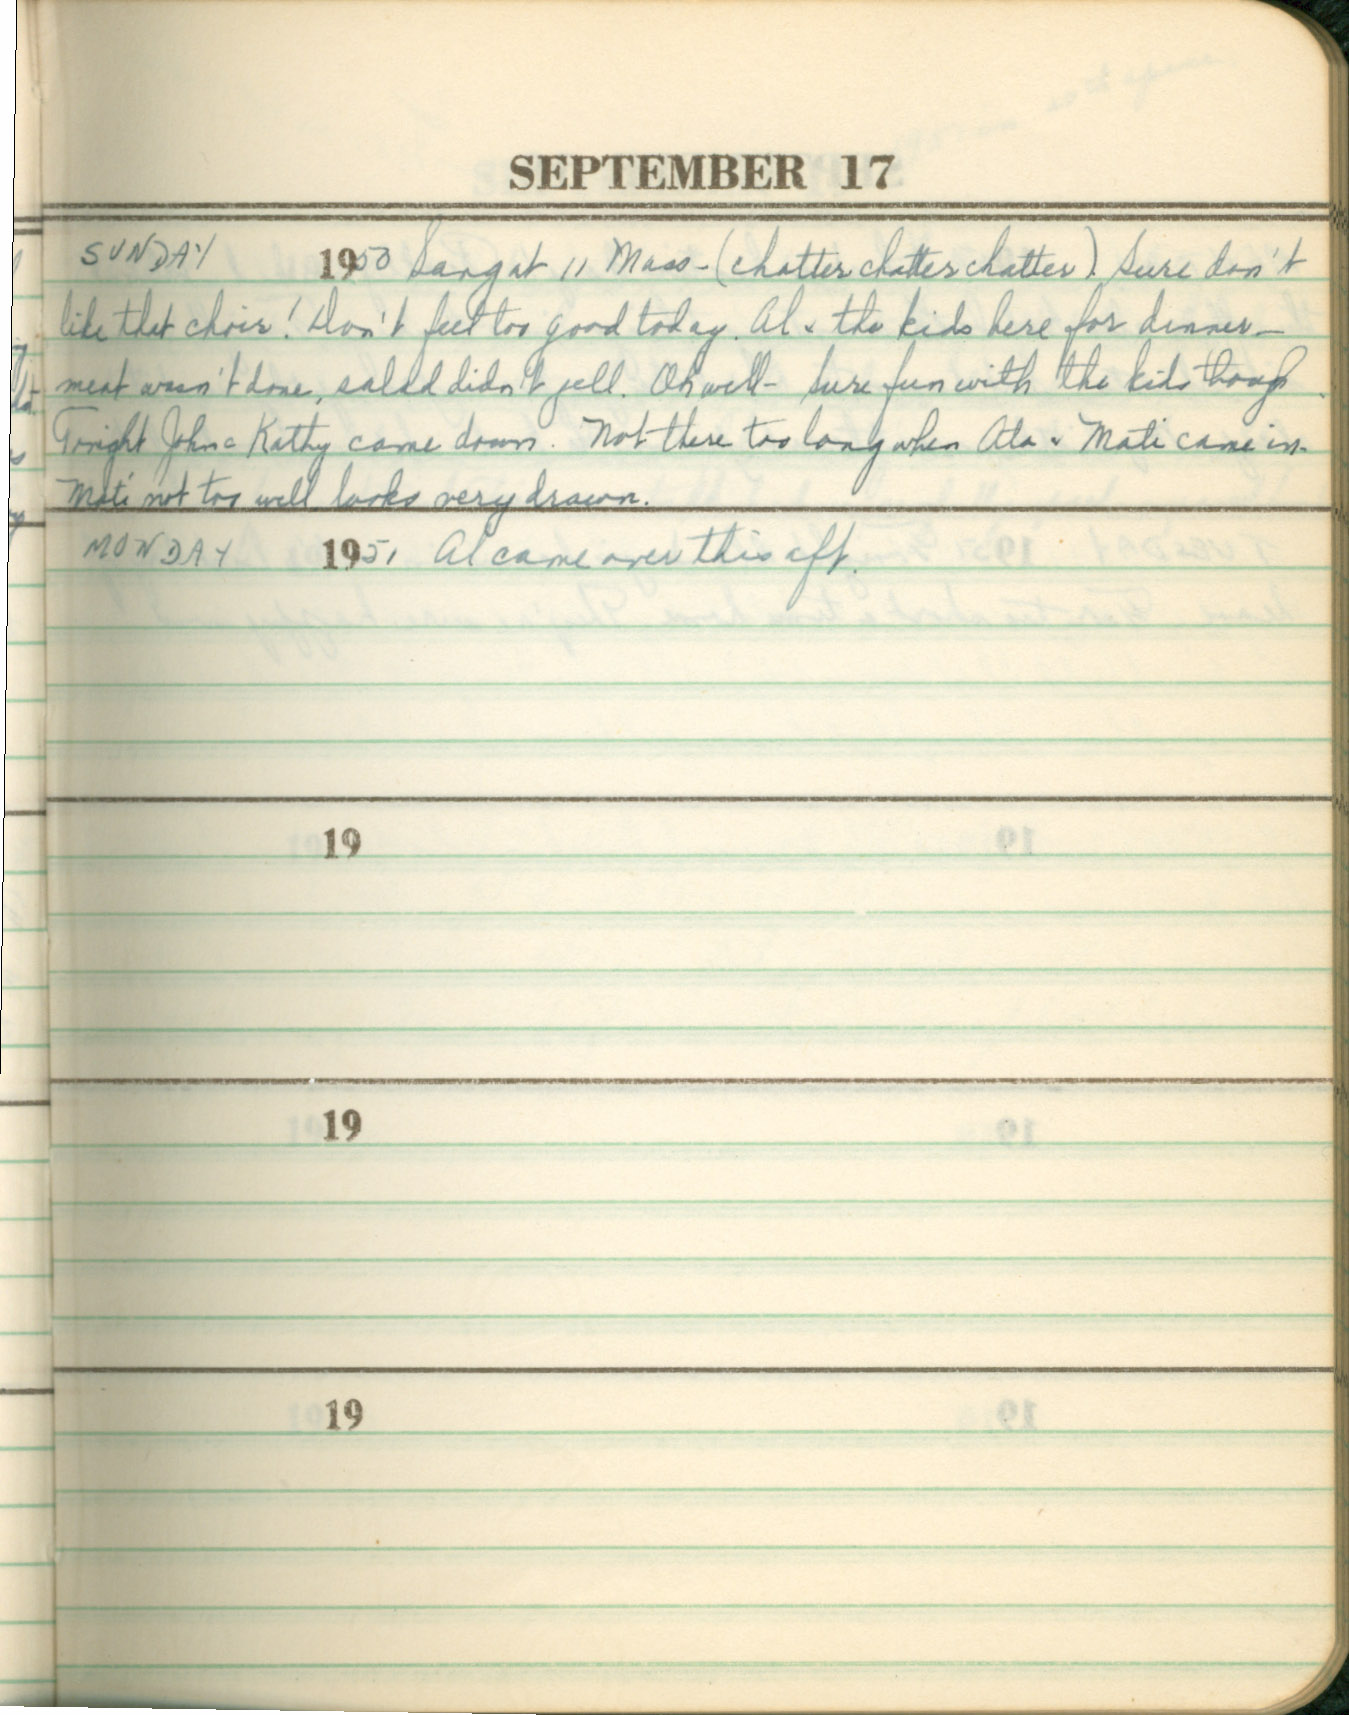 SEPTEMBER 17
SUNDAY 1950 Sang at 11 Mass - (chatter chatter chatter). Sure don't
like that choir! Don't feel too good today. Al & the kids here for dinner -
meat wasn't done, salad didn't jell. Oh well - sure fun with the kids though.
Tonight John & Kathy came down. Not there too long when Ata & Mati came in.
Mati not too well looks very drawn.
MONDAY 1951 Al came over this aft.
19
19
19